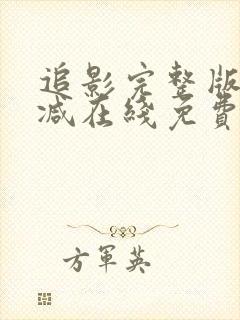 追影完整版
减在线免費
方軍英